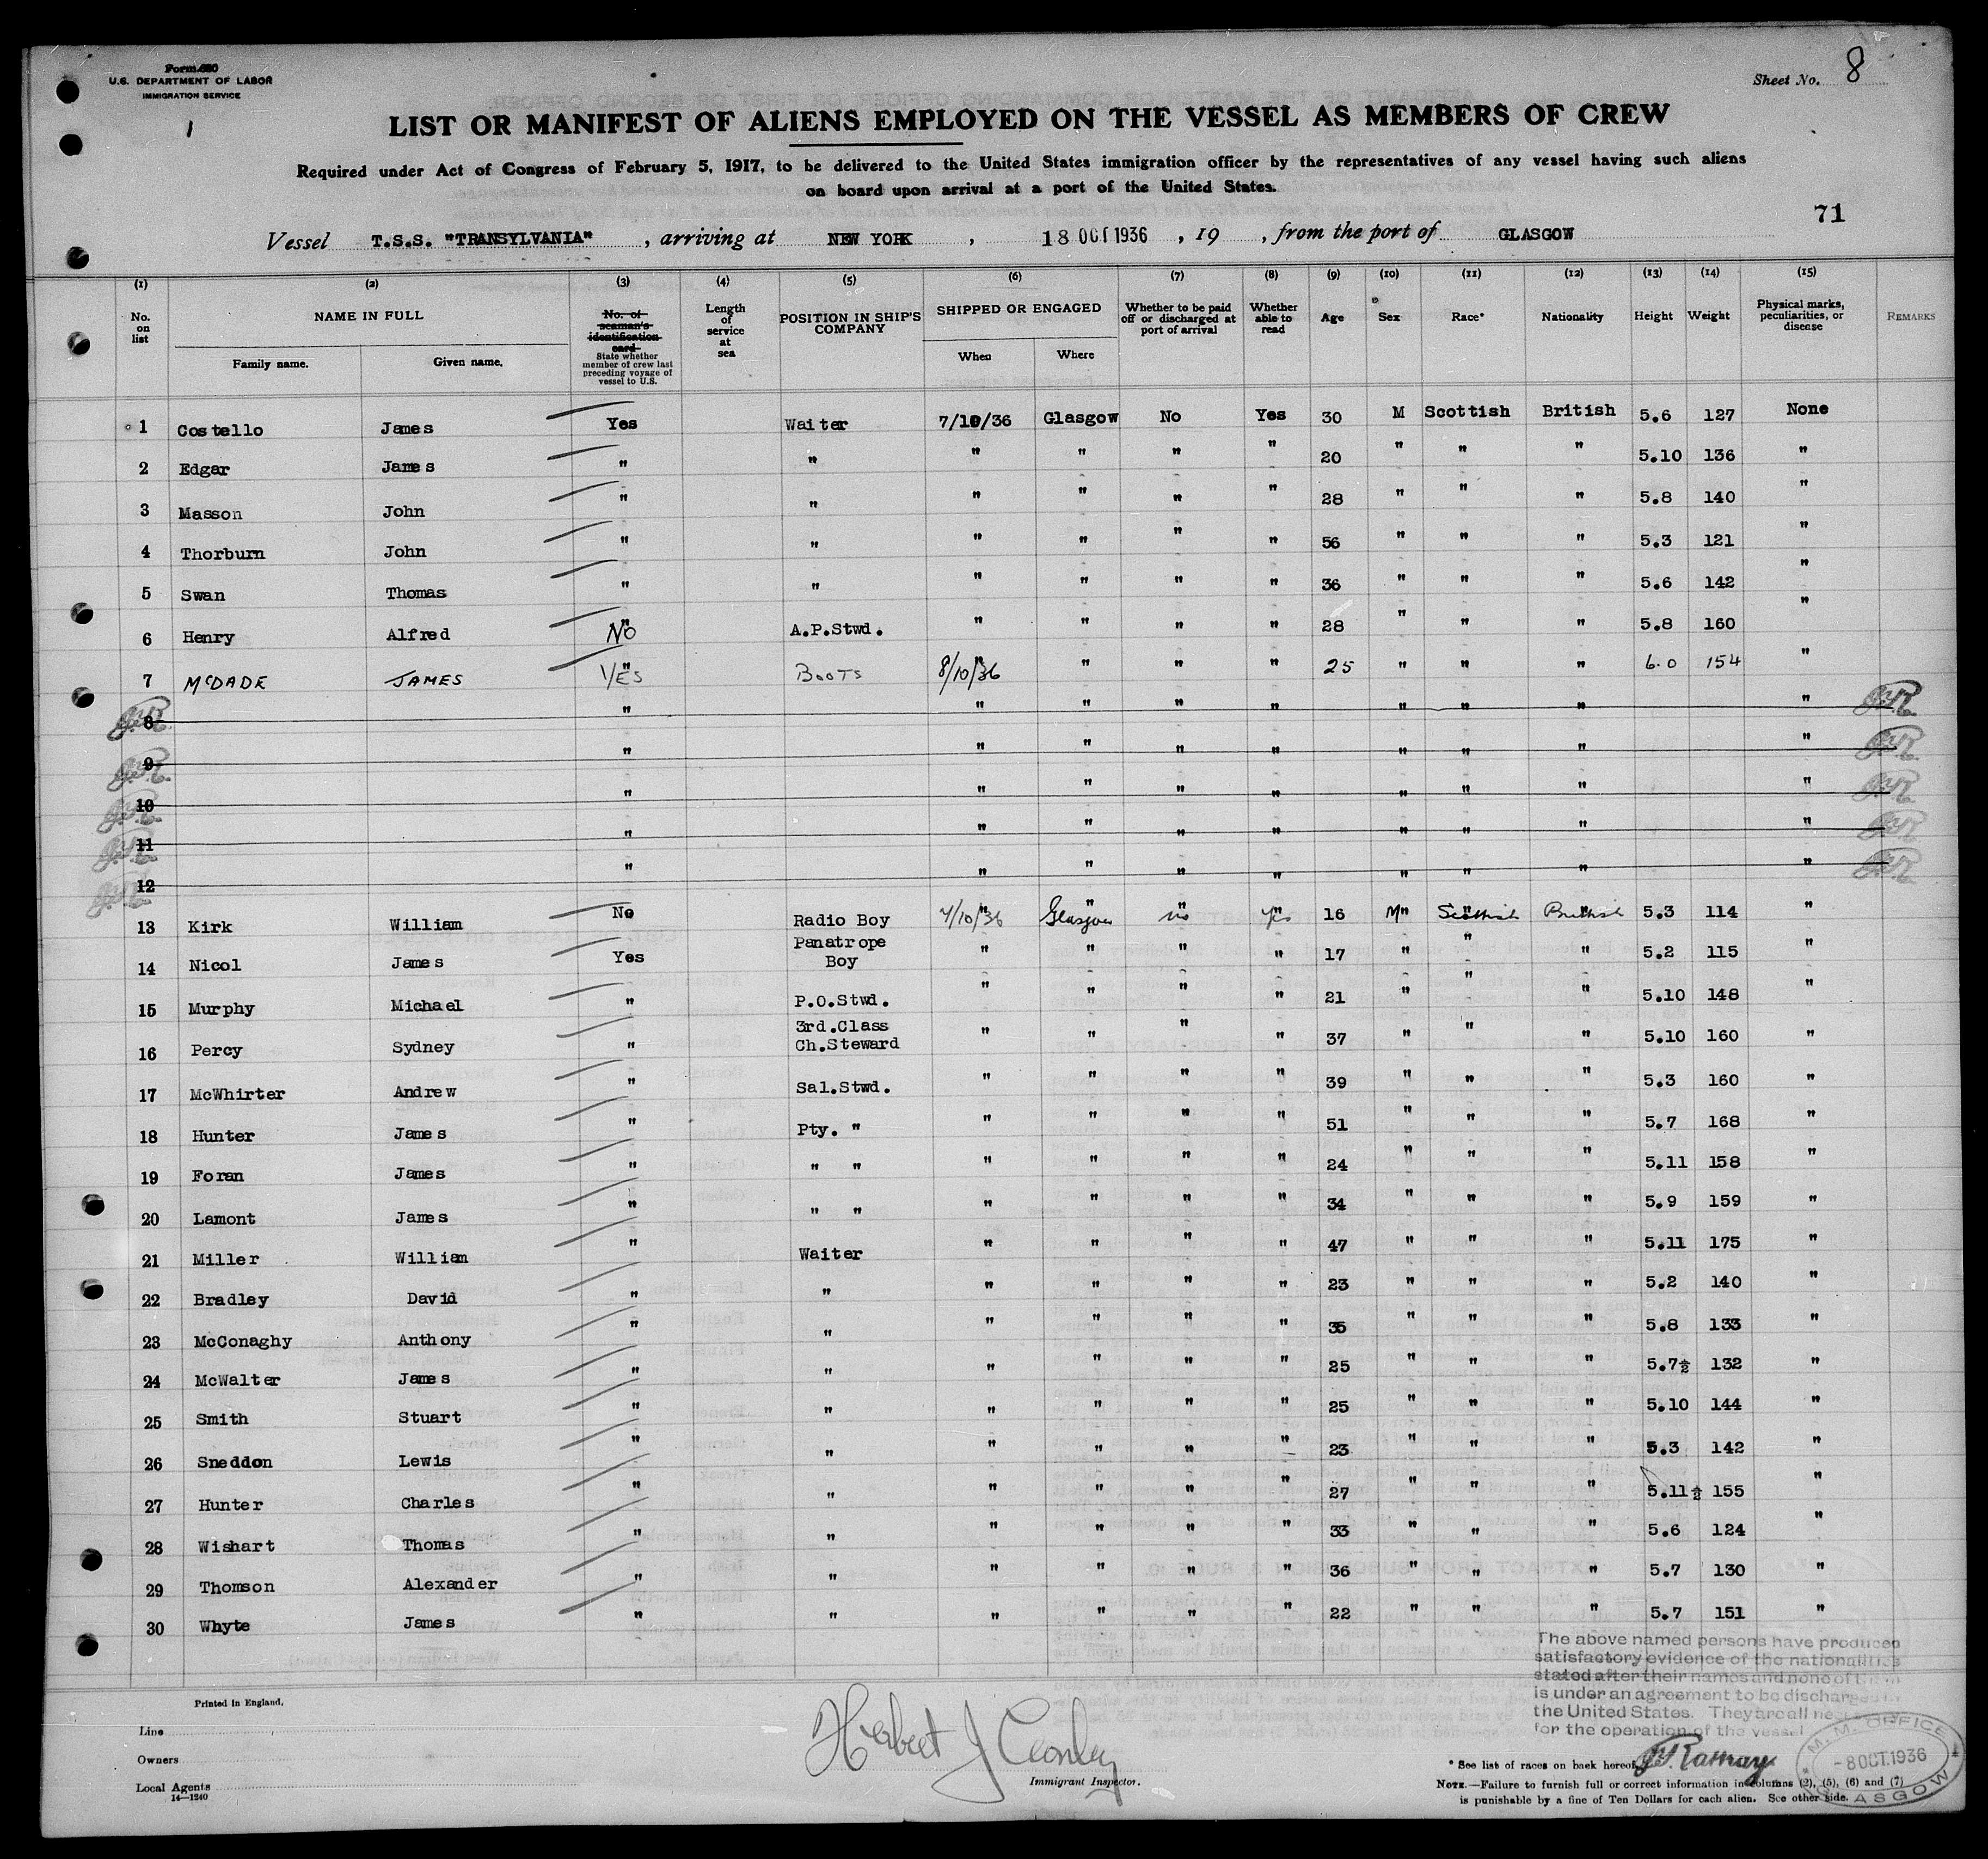 Form 680
U.S. DEPARTMENT OF LABOR
IMMIGRATION SERVICE
1
Sheet No. 8
LIST OR MANIFEST OF ALIENS EMPLOYED ON THE VESSEL AS MEMBERS OF CREW
Required under Act of Congress of February 5, 1917, to be delivered to the United States immigration officer by the representatives of any vessel having such aliens
on board upon arrival at a port of the United States.
71
Vessel T.S.S. "TRANSYLVANIA", arriving at NEW YORK, 18 OCT 1936, 19 , from the port of GLASGOW
(1) (2) (3) (4) (5) (6) (7) (8) (9) (10) (11) (12) (13) (14) (15)
No. on list
NAME IN FULL
Family name. Given name.
No. of seaman's identification card
State whether member of crew last preceding voyage of vessel to U.S.
Length of service at sea
POSITION IN SHIP'S COMPANY
SHIPPED OR ENGAGED
When Where
Whether to be paid off or discharged at port of arrival
Whether able to read
Age
Sex
Race*
Nationality
Height
Weight
Physical marks, peculiarities, or disease
REMARKS
1 Costello James Yes Waiter 7/10/36 Glasgow No Yes 30 M Scottish British 5.6 127 None
2 Edgar James " " " " " " 20 " " " 5.10 136 "
3 Masson John " " " " " " 28 " " " 5.8 140 "
4 Thorburn John " " " " " " 56 " " " 5.3 121 "
5 Swan Thomas " " " " " " 36 " " " 5.6 142 "
6 Henry Alfred " No A.P.Stwd. " " " " 28 " " " 5.8 160 "
7 McDADE JAMES " YES BOOTS " 8/10/36 " " " 25 " " " 6.0 154 "
8 " " " " " " " " "
9 " " " " " " " " "
10 " " " " " " " " "
11 " " " " " " " " "
12 " " " " " " " " "
13 Kirk William No Radio Boy " 7/10/36 " Glasgow " no " yes 16 M " " Scottish British 5.3 114 "
14 Nicol James Yes Panatrope Boy " " " " 17 " " " 5.2 115 "
15 Murphy Michael " P.O.Stwd. " " " " 21 " " " 5.10 148 "
16 Percy Sydney " 3rd.Class Ch.Steward " " " " 37 " " " 5.10 160 "
17 McWhirter Andrew " Sal.Stwd. " " " " 39 " " " 5.3 160 "
18 Hunter James " Pty. " " " " " 51 " " " 5.7 168 "
19 Foran James " " " " " " " 24 " " " 5.11 158 "
20 Lamont James " " " " " " " 34 " " " 5.9 159 "
21 Miller William " Waiter " " " " 47 " " " 5.11 175 "
22 Bradley David " " " " " " 23 " " " 5.2 140 "
23 McConaghy Anthony " " " " " " 35 " " " 5.8 133 "
24 McWalter James " " " " " " 25 " " " 5.7½ 132 "
25 Smith Stuart " " " " " " 25 " " " 5.10 144 "
26 Sneddon Lewis " " " " " " 23 " " " 5.3 142 "
27 Hunter Charles " " " " " " 27 " " " 5.11½ 155 "
28 Wishart Thomas " " " " " " 33 " " " 5.6 124 "
29 Thomson Alexander " " " " " " 36 " " " 5.7 130 "
30 Whyte James " " " " " " 22 " " " 5.7 151 "
The above named persons have produced
satisfactory evidence of the nationalities
stated after their names and none of them
is under an agreement to be discharged in
the United States. They are all
for the operation of the vessel
Printed in England.
Line
Owners
Local Agents
14—1240
Herbert J
Immigrant Inspector.
* See list of races on back hereof.
M. M. OFFICE
- 8 OCT. 1936
GLASGOW
NOTE.—Failure to furnish full or correct information in columns (2), (5), (6) and (7)
is punishable by a fine of Ten Dollars for each alien. See other side.